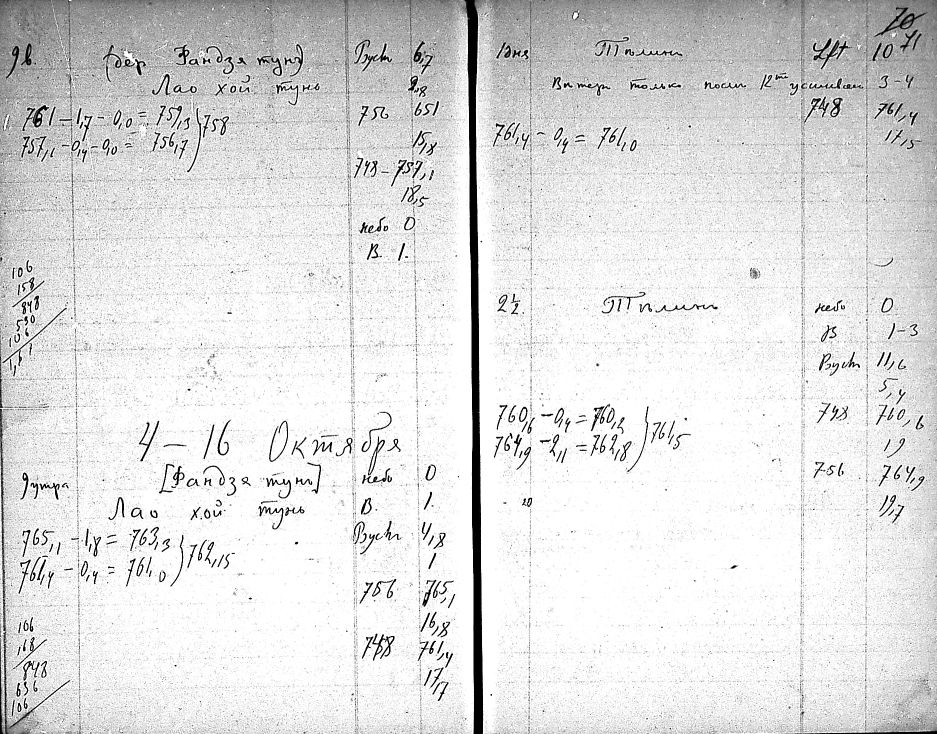 9в. (дер Фандзя тунь) Руст 6,7
Лао хой тунь 2,8
761 – 1,7 – 0,0 = 759,3 } 758 756 651
757,1 – 0,4 – 0,0 = 756,7 15,8
748 – 757,1
18,5
небо 0
В. 1.
106
158
848
530
106
1,61
4 – 16 Октября
9 утра [Фандзя тунь] небо 0
Лао хой тунь В. 1.
765,1 – 1,8 = 763,3 } 762,15 4,8
761,4 – 0,4 = 761,0 1
756 765,1
16,8
106 748 761,4
,168 17,17
848
636
106
70
71
1 дня Тѣлинъ 10
только 12 3–4
748 761,4
761,4 – 0,4 = 761,0 17,5
2½ Тѣлинъ небо 0
В 1–3
11,6
5,4
760,6 – 0,4 = 760,2 } 761,5 748 760,6
764,9 – 2,1 = 762,8 19
756 764,9
19,7